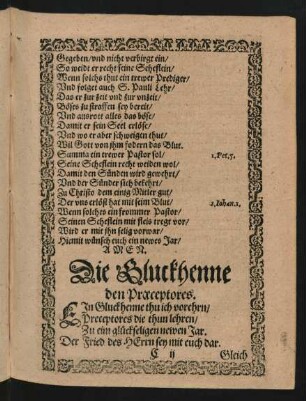 Gegeben/vnd nicht verbirge ein/
So weidt er recht seine Scheflein/
Wenn solchs thut ein trewer Prediger/
Vnd folget auch S. Pauli Lehr/
Das er zur zeit vnd zur vnzeit/
Böses zu straffen sey bereit/
Vnd ausrott alles das böse/
Damit er sein Seel erlöse/
Vnd wo er aber schweigen thut/
Wil Gott von ihm fodern das Blut.
Summa ein trewer Pastor sol/ 1. Pet. 5.
Seine Scheflein recht weiden wol/
Damit den Sünden wird gewehrt/
Vnd der Sünder sich bekehrt/
Zu Christo dem einig Mitler gut/
Der vns erlöst hat mit seim Blut/ 1. Johan. 1.
Wenn solches ein frommer Pastor/
Seinen Scheflein mit fleis tregt vor/
Wird er mit ihn selig vorwar/
Hiemit wünsch euch ein newes Jar/
AMEN.
Die Gluckhenne
den Præceptores.
EIn Gluckhenne thu ich vorehrn/
Præceptores die thun lehren/
Zu ein glückseligen newen Jar.
Der Fried des HErrn sey mit euch dar.
C ij Gleich